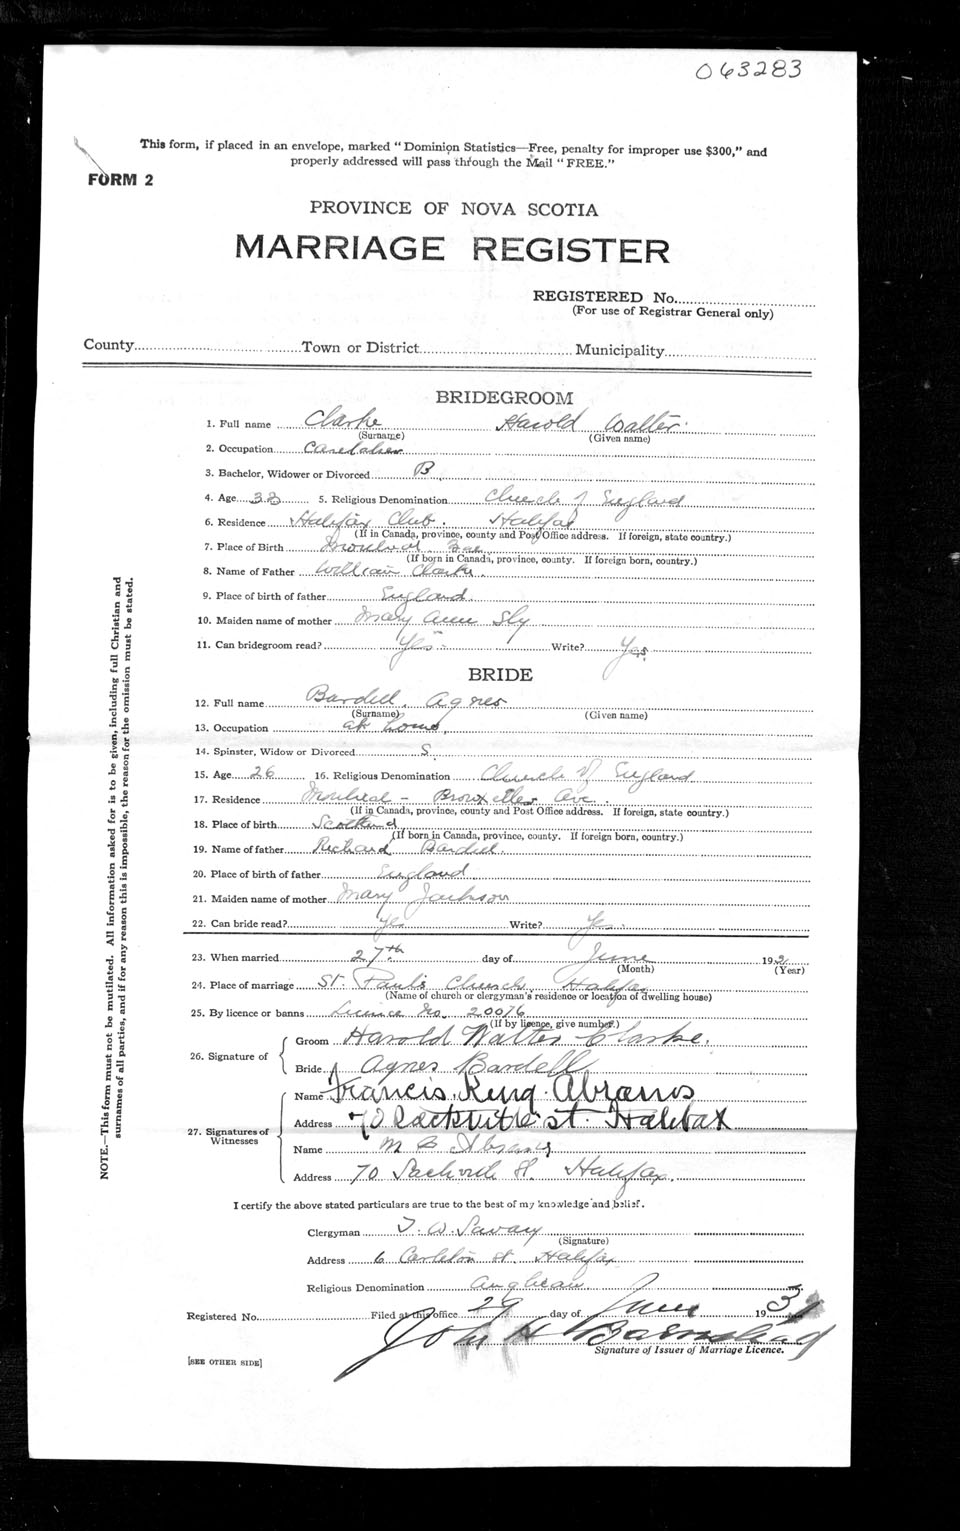 063283
This form, if placed in an envelope, marked "Dominion Statistics—Free, penalty for improper use $300," and
properly addressed will pass through the Mail "FREE."
FORM 2
PROVINCE OF NOVA SCOTIA
MARRIAGE REGISTER
REGISTERED No.
(For use of Registrar General only)
County Town or District Municipality
BRIDEGROOM
1. Full name Clarke Harold Walter
(Surname) (Given name)
2. Occupation Caretaker
3. Bachelor, Widower or Divorced B
4. Age 5. Religious Denomination Church of England
6. Residence Halifax Club. Halifax
(If in Canada, province, county and Post Office address. If foreign, state country.)
7. Place of Birth Montreal
(If born in Canada, province, county. If foreign born, country.)
8. Name of Father William Clarke.
9. Place of birth of father England
10. Maiden name of mother Mary Ann Sly
11. Can bridegroom read? Yes Write? Yes
BRIDE
12. Full name Bardell, Agnes
(Surname) (Given name)
13. Occupation at home,
14. Spinster, Widow or Divorced S.
15. Age 26 16. Religious Denomination Church of England
17. Residence Montreal - Ave.
(If in Canada, province, county and Post Office address. If foreign, state country.)
18. Place of birth Scotland
(If born in Canada, province, county. If foreign born, country.)
19. Name of father Richard Bardell.
20. Place of birth of father England
21. Maiden name of mother Mary Jackson
22. Can bride read? Yes Write? Yes
23. When married 27th day of June 193
(Month) (Year)
24. Place of marriage St. Paul's Church, Halifax
(Name of church or clergyman's residence or location of dwelling house)
25. By licence or banns Licence No. 20076
(If by licence, give number.)
26. Signature of
Groom Harold Walter Clarke.
Bride Agnes Bardell
27. Signatures of Witnesses
Name Francis King Abrams
Address 70 Sackville St. Halifax
Name M B Abrams
Address 70 Sackville St. Halifax.
I certify the above stated particulars are true to the best of my knowledge and belief.
Clergyman T. W. Savary
(Signature)
Address 6 Carleton St. Halifax
Religious Denomination Anglican
Registered No. Filed at this office 29 day of June 193
John H Barnstead
Signature of Issuer of Marriage Licence.
[SEE OTHER SIDE]
NOTE.—This form must not be mutilated. All information asked for is to be given, including full Christian and
surnames of all parties, and if for any reason this is impossible, the reason for the omission must be stated.